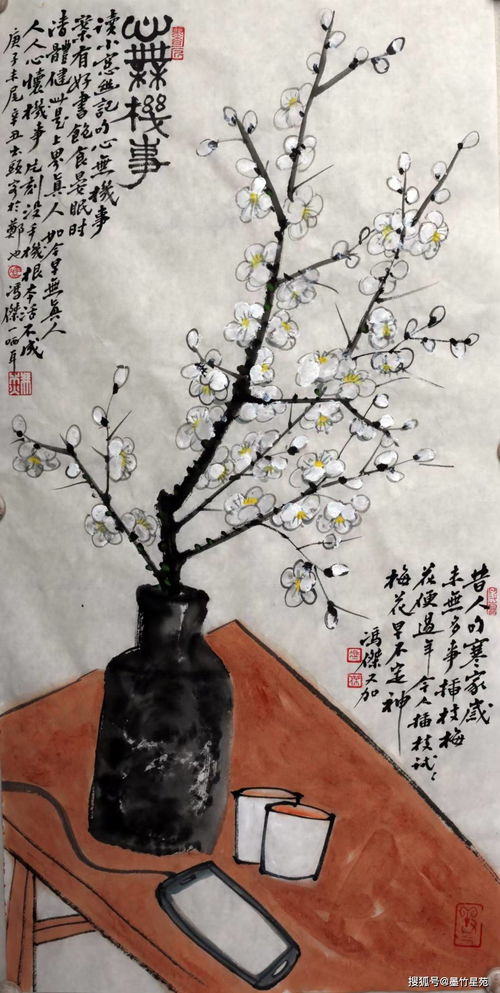 心無機事
读小窓幽記曰心無機事
案有好書飽食晏眠时
清體健此是上界真人 如今早無真人
人人心懷機事 片刻没手機根本活不成
庚子末尾辛丑出頭客於鄭也 馮傑一哂耳
昔人曰寒家歲
末無多事插枝梅
花便過年今人插枝試〻
梅花早不定神
馮傑又加
搜狐号@墨竹星苑